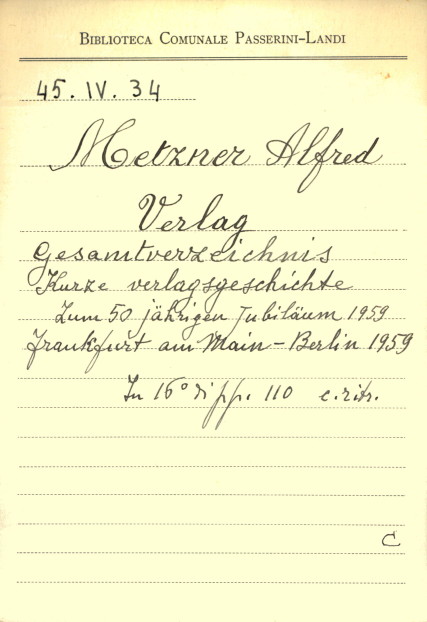 BIBLIOTECA COMUNALE PASSERINI-LANDI
45. IV. 34
Metzner Alfred
Verlag
Gesamtverzeichnis
Kurze verlagsgeschichte
Zum 50 jährigen Jubiläum 1959
Frankfurt am Main - Berlin 1959
In 16° di pp. 110 c. ritr.
C